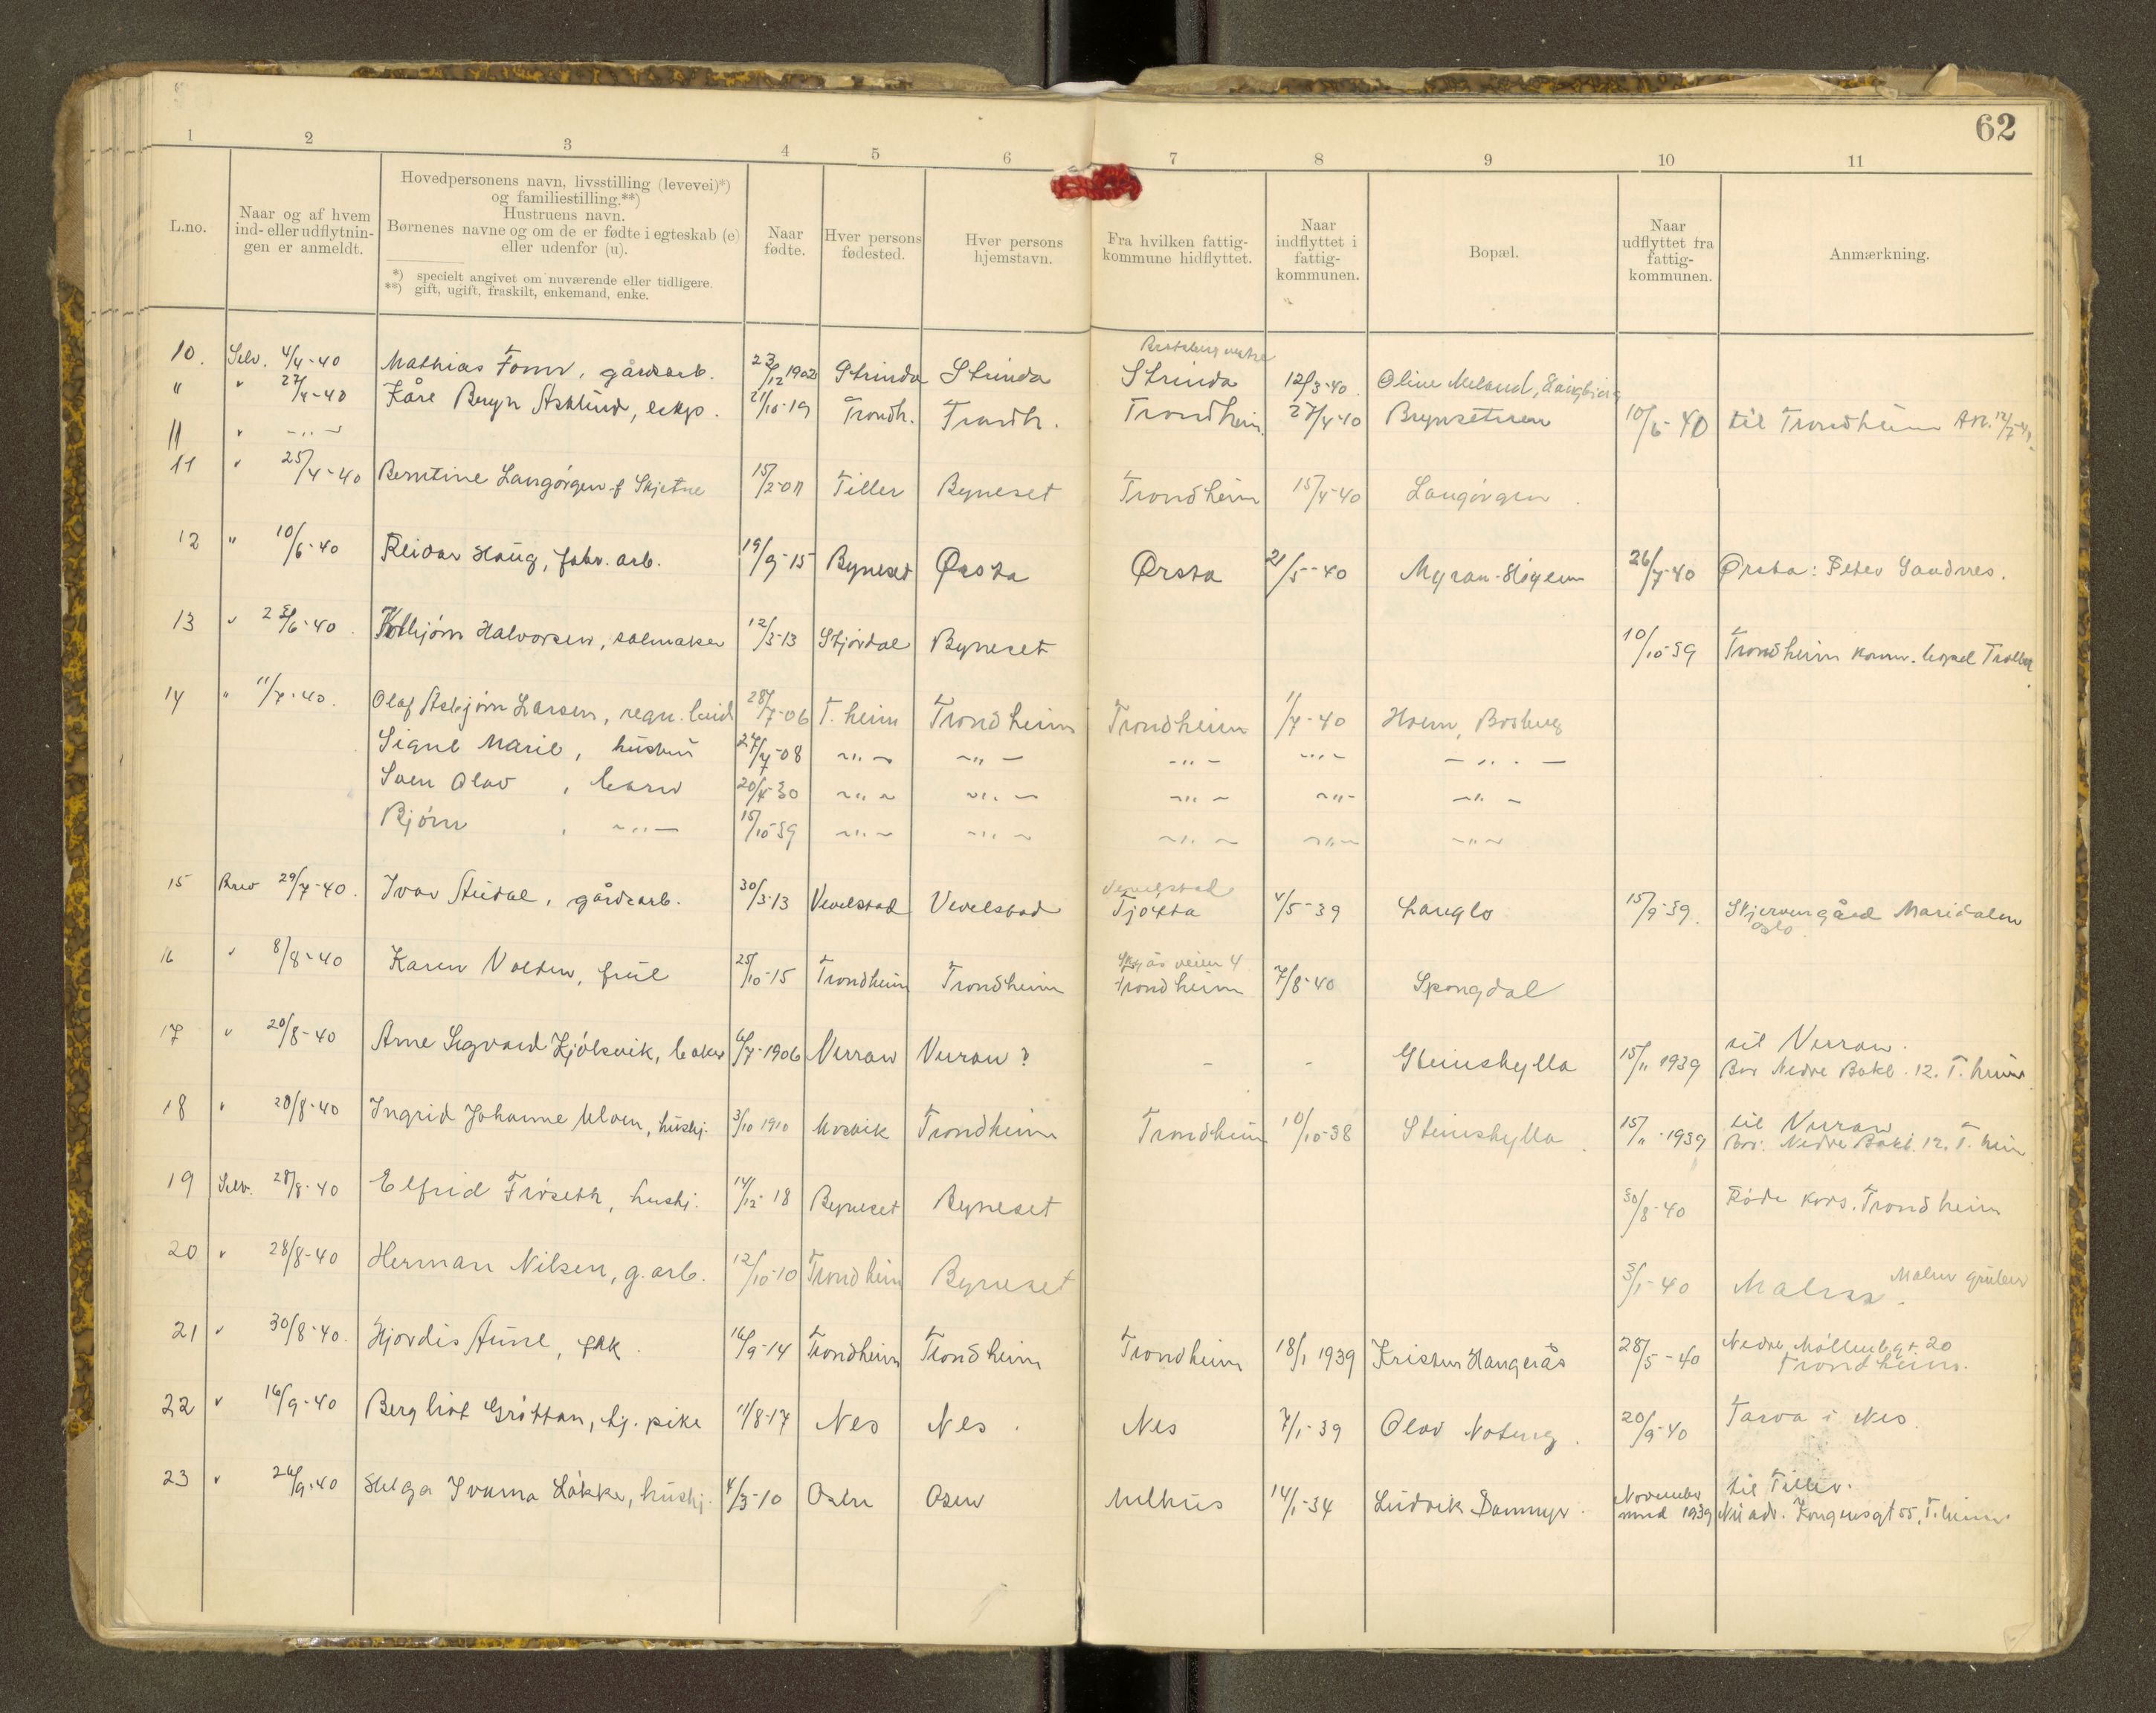 62
1 2 3 4 5 6 7 8 9 10 11
L.no.
Naar og af hvem
ind- eller udflytnin-
gen er anmeldt.
Hovedpersonens navn, livsstilling (levevei)*)
og familiestilling.**)
Hustruens navn.
Børnenes navne og om de er fødte i egteskab (e)
eller udenfor (u).
*) specielt angivet om nuværende eller tidligere.
**) gift, ugift, fraskilt, enkemand, enke.
Naar
fødte.
Hver persons
fødested.
Hver persons
hjemstavn.
Fra hvilken fattig-
kommune hidflyttet.
Naar
indflyttet i
fattig-
kommunen.
Bopæl.
Naar
udflyttet fra
fattig-
kommunen.
Anmærkning.
10. Selv. 4/4-40 Mathias , gårdsarb. 23/12 1902 Strinda Strinda Strinda 12/3-40 Oline
" " 27/4-40 Kåre Asklund, 21/10-19 Trondh. Trondh. Trondheim 27/4-40 10/6-40 til Trondheim
11 " -"-
11 " 25/4-40 Berntine Langørgen f Skjetne Tiller Byneset Trondheim 15/4-40 Langørgen
12 " 10/6-40 Reidar Haug, fabr. arb. 19/9-15 Byneset Ørsta Ørsta 21/5-40 Myran-Høyem 26/7-40 Ørsta: Peter Sandnes.
13 " Kolbjørn Halvorsen, salmaker 12/3-13 Stjørdal Byneset 10/10-39 Trondheim komm.
14 " 11/7-40. Olaf Asbjørn Larsen, 28/7-06 T.heim Trondheim Trondheim 1/7-40 Holm, Bosberg
Signe Marie, hustru 27/7-08 -"- -"- -"- -"- -"-
Sven Olav , barn 20/4-30 -"- -"- -"- -"- -"-
Bjørn , -"- 15/10-39 -"- -"- -"- -"- -"-
15 Brev 29/7-40. Ivar , gårdsarb. 30/3-13 Vevelstad Vevelstad
Vevelstad
Tjøtta 4/5-39 Langlo 15/9-39. Skjervengård Maridalen
Oslo
16 " 8/8-40 Karen Volden, frk 25/10-15 Trondheim Trondheim
veien 4
Trondheim 7/8-40 Spongdal
17 " 20/8-40 Arne Sigvard Kjølsvik, baker 6/7-1906 Verran Verran? - - Steinshylla 15/11 1939 til Verran.
Bor Nedre Bakl. 12. T.heim
18 " 20/8-40 Ingrid Johanne Moen, hushj. 3/10 1910 Mosvik Trondheim Trondheim 10/10-38 Steinshylla 15/11-1939 til Verran
Bor: Nedre Bakl. 12, T.heim
19 Selv. 28/8-40 Elfrid Frøseth, hushj. 14/12-18 Byneset Byneset 30/8-40 Røde kors. Trondheim
20 " 28/8-40 Herman Nilsen, g.arb. 12/10-10 Trondheim Byneset 3/1-40 Malm. Malm gruber
21 " 30/8-40. Hjørdis Aune, frk. 16/9-14 Trondheim Trondheim Trondheim 18/1 1939 Kristen Haugerås 28/5-40 Nedre Møllenb.gt. 20
Trondheim.
22 " 16/9-40 Bergliot Grøttan, tj. pike 11/8-17 Nes Nes. Nes 7/1-39 Olav 20/9-40 Tarva i Nes.
23 " 26/9-40 Helga Løkke, hushj. 4/3-10 Osen Osen Melhus 14/1-34 Ludvik Dammyr. November
mnd 1939 til Tiller.
Nu adr. Kongensgt 55, T.heim.